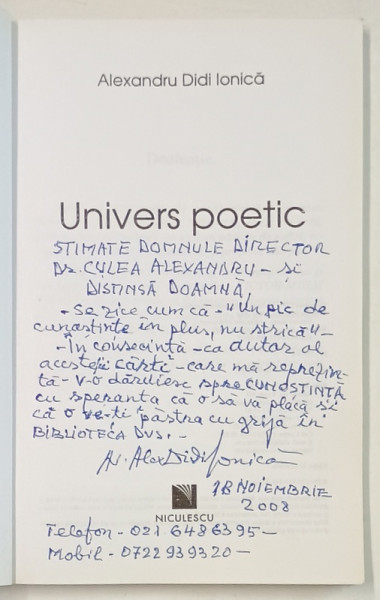 Alexandru Didi Ionică
Univers poetic
STIMATE DOMNULE DIRECTOR
DR. CULEA ALEXANDRU - și
DISTINSĂ DOAMNĂ,
- Se zice cum că - "Un pic de
cunoștințe în plus, nu strică" -
- În consecință - ca autor al
acestei cărți - care mă reprezin-
tă - v-o dăruiesc spre CUNOȘTINȚĂ
cu speranța că o să vă placă și
că o ve-ți păstra cu grijă în
BIBLIOTECA DVS. -
Alex Didi Ionică
18 NOIEMBRIE
2008
NICULESCU
Telefon - 021 6486395 -
Mobil - 0722939320 -